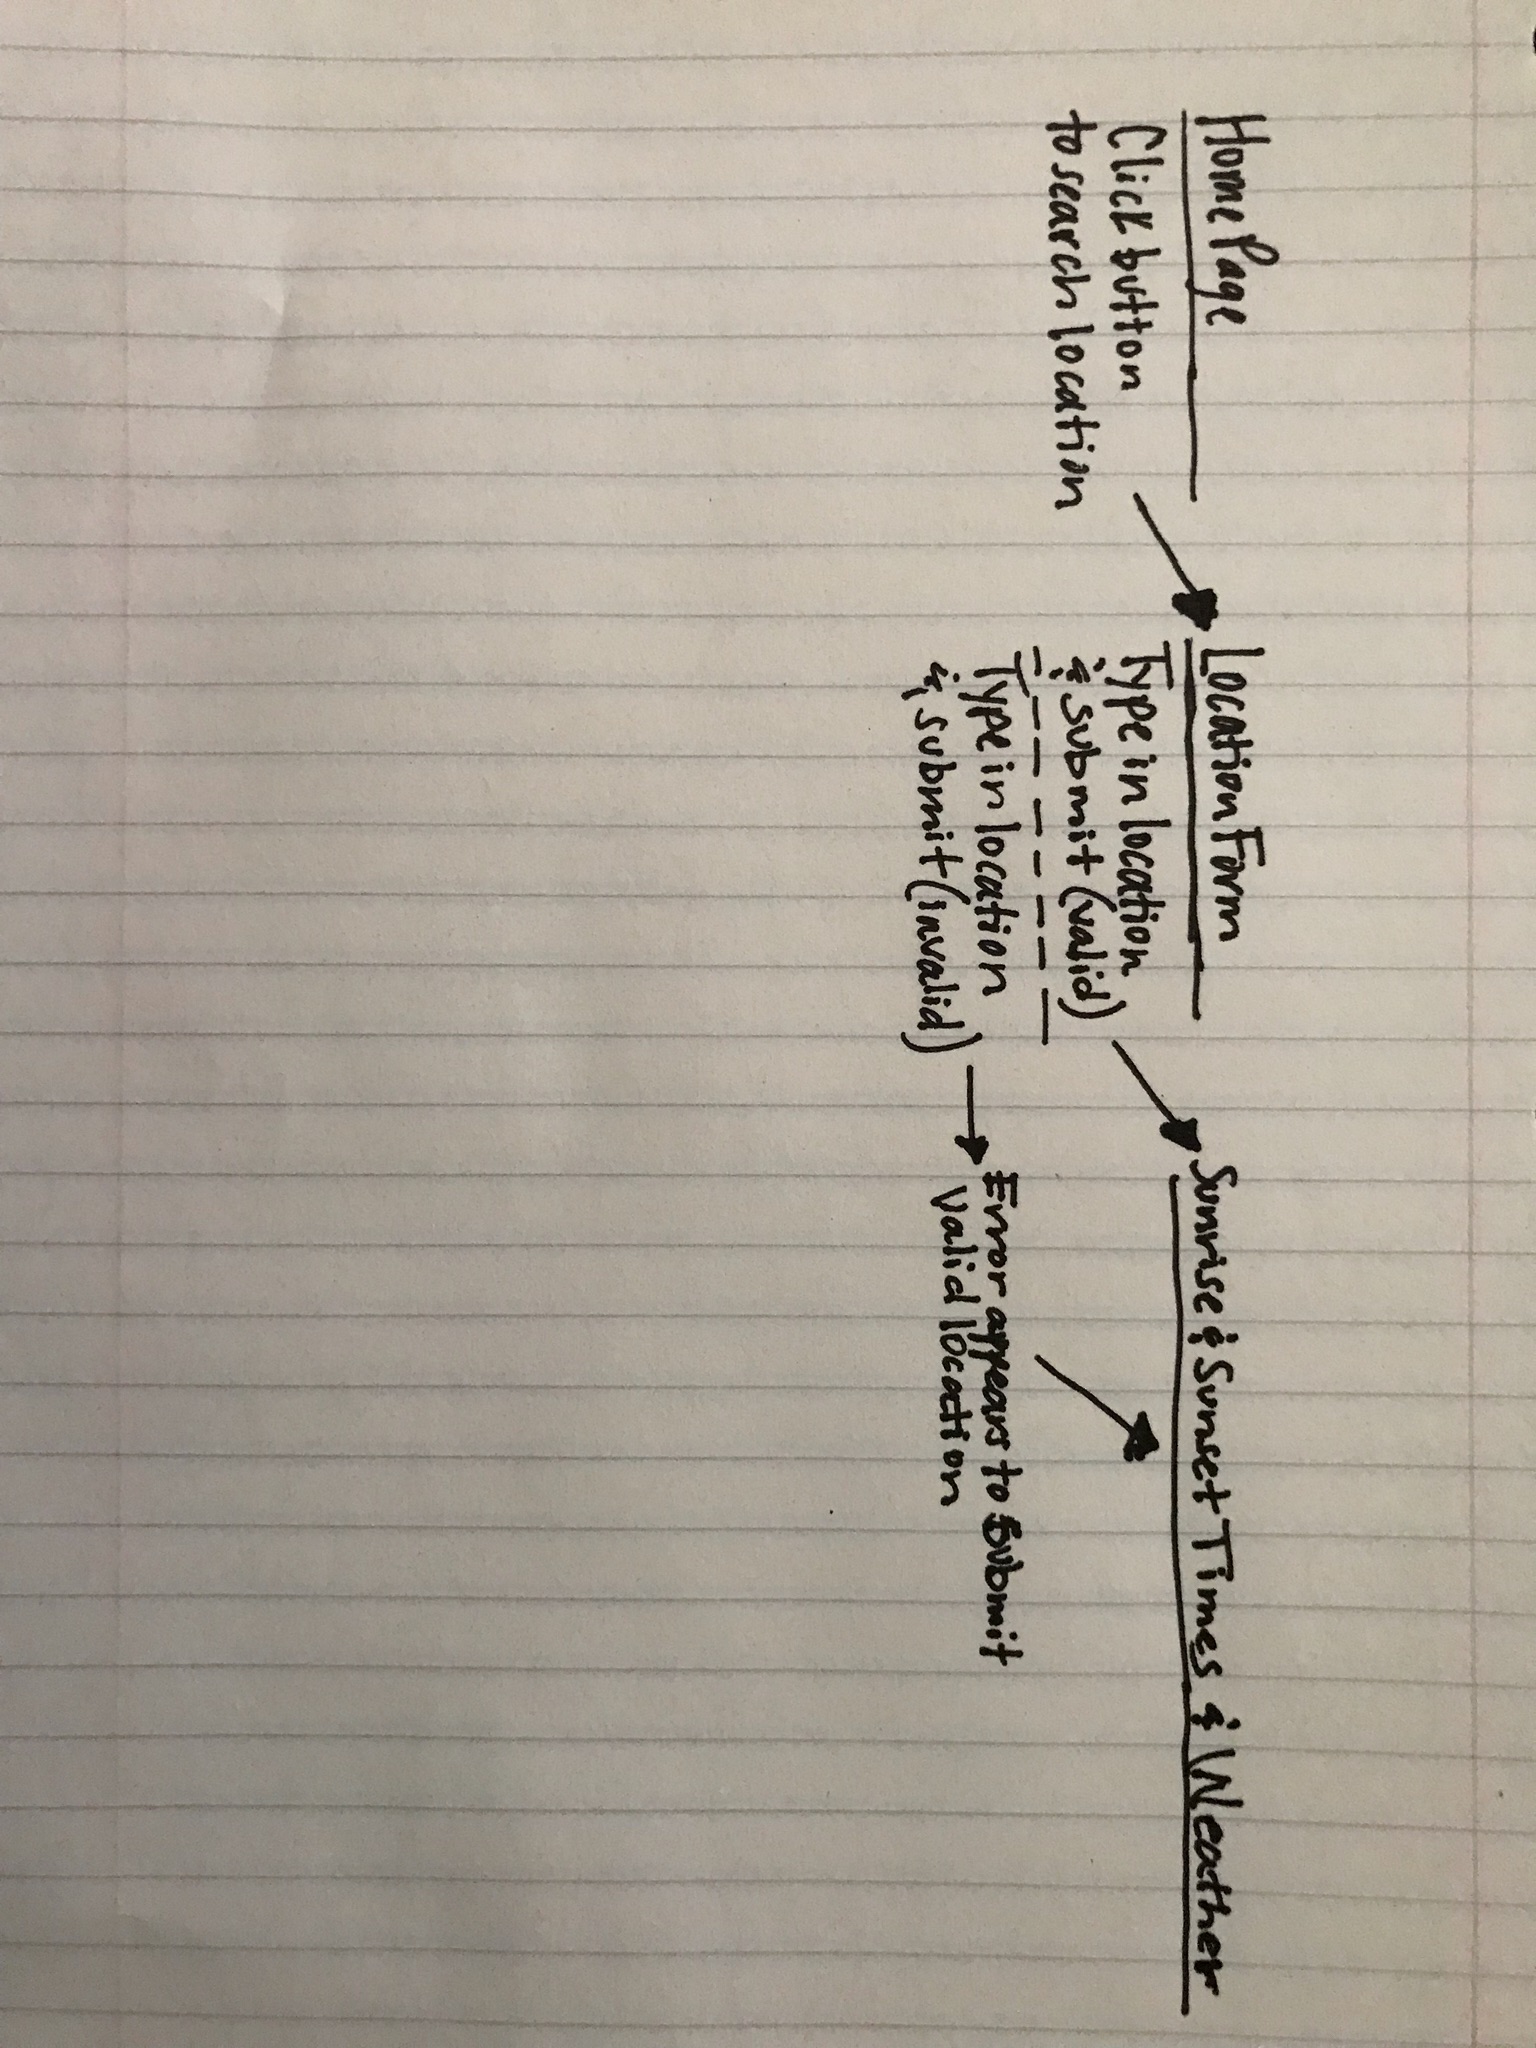 Home Page
Click button
to search location
Location Form
Type in location
& submit (valid)
Type in location
& submit (invalid)
Sunrise & Sunset Times & Weather
Error appears to submit
valid location